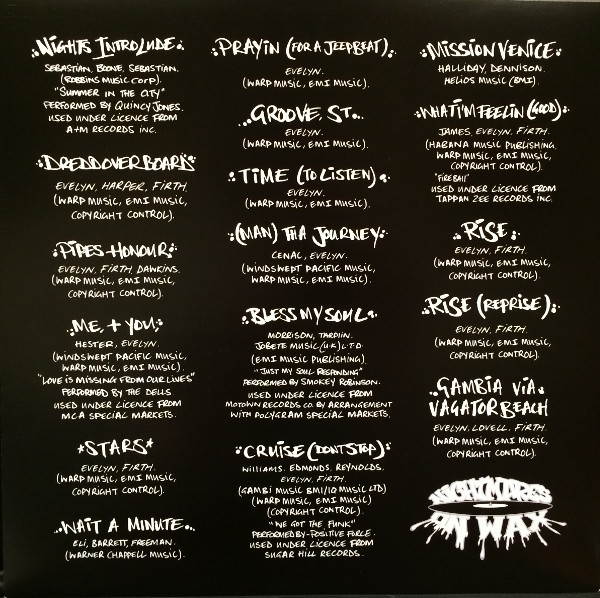 NIGHTS INTROLUDE
SEBASTIAN, BOONE, SEBASTIAN.
(ROBBINS MUSIC CORP).
"SUMMER IN THE CITY"
PERFORMED BY QUINCY JONES.
USED UNDER LICENCE FROM
A+M RECORDS INC.
DREDDOVERBOARD
EVELYN, HARPER, FIRTH.
(WARP MUSIC, EMI MUSIC,
COPYRIGHT CONTROL).
PIPES HONOUR
EVELYN, FIRTH, DAWKINS.
(WARP MUSIC, EMI MUSIC,
COPYRIGHT CONTROL).
ME + YOU
HESTER, EVELYN.
(WINDSWEPT PACIFIC MUSIC,
WARP MUSIC, EMI MUSIC).
"LOVE IS MISSING FROM OUR LIVES"
PERFORMED BY THE DELLS
USED UNDER LICENCE FROM
MCA SPECIAL MARKETS.
*STARS*
EVELYN, FIRTH.
(WARP MUSIC, EMI MUSIC,
COPYRIGHT CONTROL).
WAIT A MINUTE
ELI, BARRETT, FREEMAN.
(WARNER CHAPPELL MUSIC).
PRAYIN (FOR A JEEPBEAT)
EVELYN.
(WARP MUSIC, EMI MUSIC).
GROOVE ST.
EVELYN.
(WARP MUSIC, EMI MUSIC).
TIME (TO LISTEN)
EVELYN.
(WARP MUSIC, EMI MUSIC).
(MAN) THA JOURNEY
CENAC, EVELYN.
(WINDSWEPT PACIFIC MUSIC,
WARP MUSIC, EMI MUSIC).
BLESS MY SOUL
MORRISON, TARPLIN.
JOBETE MUSIC (U.K) LTD
(EMI MUSIC PUBLISHING).
"JUST MY SOUL RESPONDING"
PERFORMED BY SMOKEY ROBINSON.
USED UNDER LICENCE FROM
MOTOWN RECORDS CO. BY ARRANGEMENT
WITH POLYGRAM SPECIAL MARKETS.
CRUISE (DONT STOP)
WILLIAMS, EDMONDS, REYNOLDS,
EVELYN, FIRTH.
(GAMBI MUSIC BMI/IQ MUSIC LTD)
(WARP MUSIC, EMI MUSIC)
(COPYRIGHT CONTROL).
"WE GOT THE FUNK"
PERFORMED BY-POSITIVE FORCE.
USED UNDER LICENCE FROM
SUGAR HILL RECORDS.
MISSION VENICE
HALLIDAY, DENNISON.
HELIOS MUSIC (EMI).
WHAT I'M FEELIN (GOOD)
JAMES, EVELYN, FIRTH.
(HABANA MUSIC PUBLISHING,
WARP MUSIC, EMI MUSIC,
COPYRIGHT CONTROL).
"FIREBALL"
USED UNDER LICENCE FROM
TAPPAN ZEE RECORDS INC.
RISE
EVELYN, FIRTH.
(WARP MUSIC, EMI MUSIC,
COPYRIGHT CONTROL).
RISE (REPRISE)
EVELYN, FIRTH.
(WARP MUSIC, EMI MUSIC,
COPYRIGHT CONTROL).
GAMBIA VIA
VAGATOR BEACH
EVELYN, LOVELL, FIRTH.
(WARP MUSIC, EMI MUSIC,
COPYRIGHT CONTROL).
NIGHTMARES
ON WAX